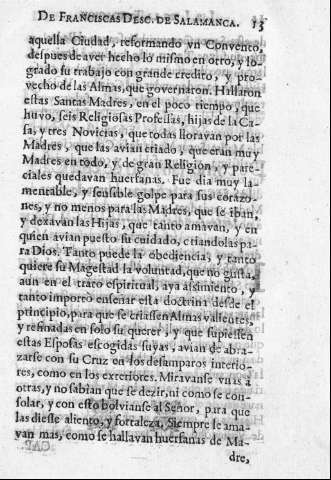 DE FRANCISCAS DESC. DE SALAMANCA. 13
aquella Ciudad, reformando vn Convento,
despues de aver hecho lo mismo en otro, y lo-
grado su trabajo con grande credito, y pro-
vecho de las Almas, que governaron. Hallaron
estas Santas Madres, en el poco tiempo, que
huvo, seis Religiosas Professas, hijas de la Ca-
sa, y tres Novicias, que todas lloravan por las
Madres, que las avian criado, que eran muy
Madres en todo, y de gran Religion, y pare-
ciales quedavan huerfanas. Fue dia muy la-
mentable, y sensible golpe para sus corazo-
nes, y no menos para las Madres, que se iban,
y dexavan las Hijas, que tanto amavan, y en
quien avian puesto su cuidado, criandolas pa-
ra Dios. Tanto puede la obediencia, y tanto
quiere su Magestad la voluntad, que no gusta,
aun en el trato espiritual, aya assimiento, y
tanto importò enseñar esta doctrina desde el
principio, para que se criassen Almas valientes,
y refinadas en solo su querer, y que supiessen
estas Esposas escogidas suyas, avian de abra-
zarse con su Cruz en los desamparos interio-
res, como en los exteriores. Miravanse vnas à
otras, y no sabian que se dezir, ni como se con-
solar, y con esto bolvianse al Señor, para que
las diesse aliento, y fortaleza. Siempre se ama-
van mas, como se hallavan huerfanas de Ma-
dre,